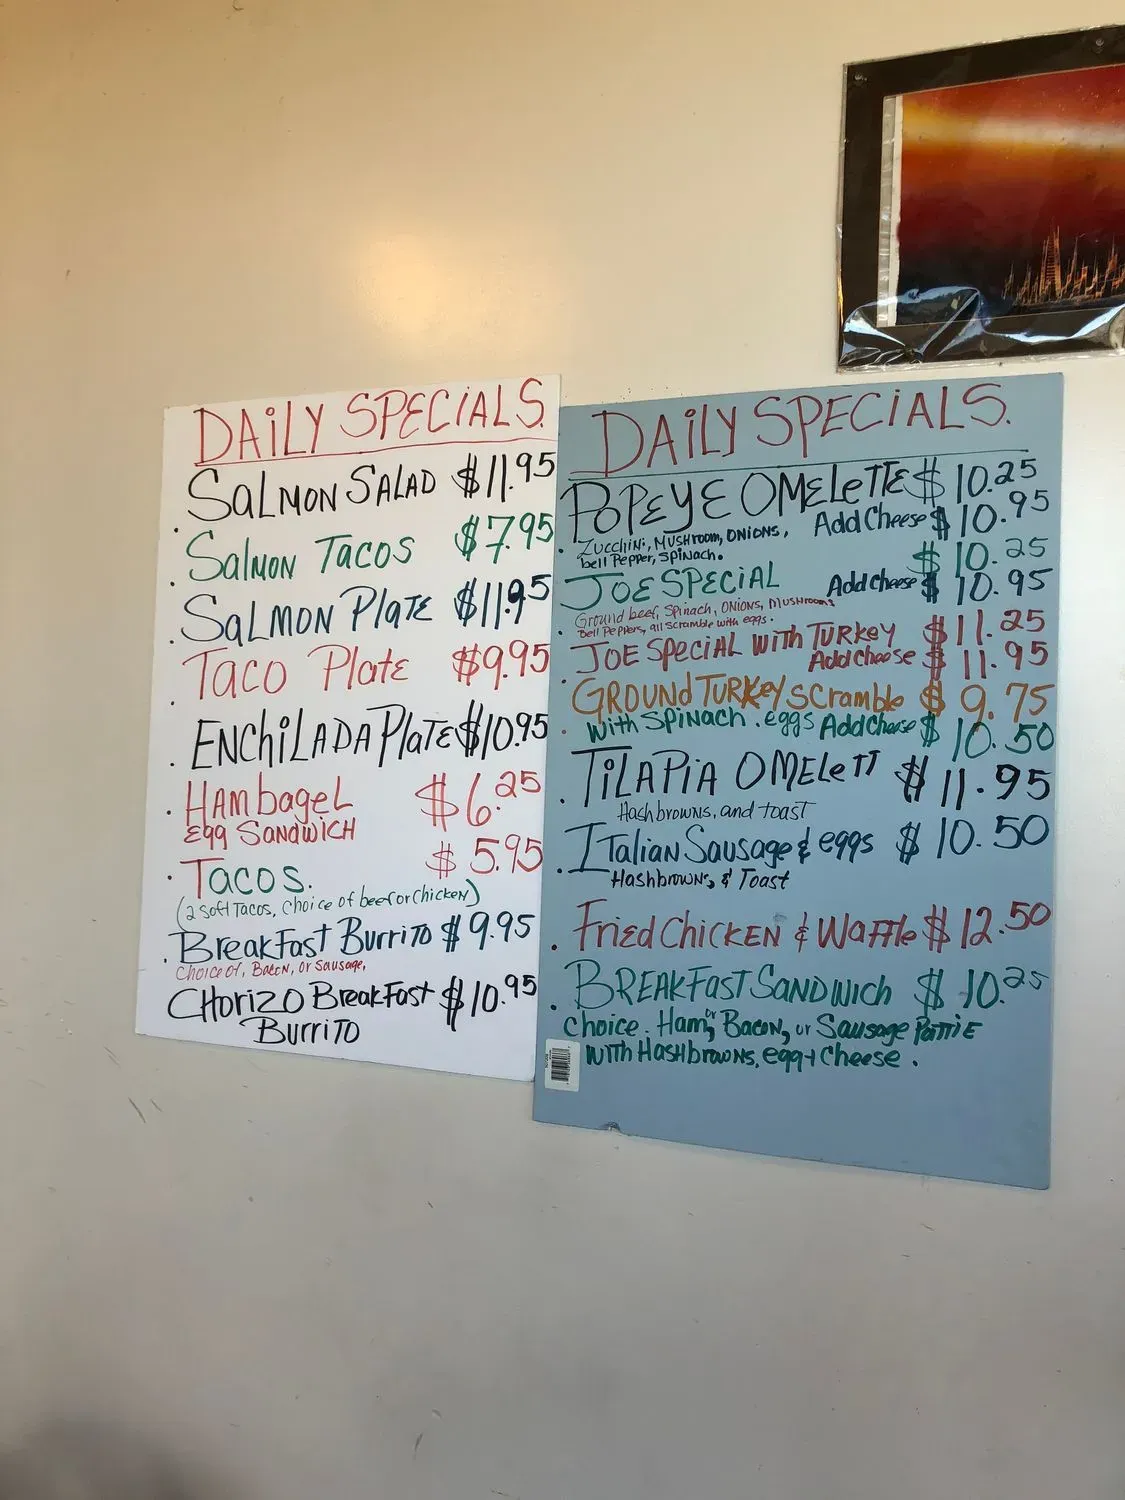 DAILY SPECIALS.
SALMON SALAD $11.95
SALMON TACOS $7.95
SALMON PLATE $11.95
TACO PLATE $9.95
ENCHILADA PLATE $10.95
HAM bagEL $6.25
Egg SANDWICH
TACOS. $5.95
(2 SOFT TACOS, CHOICE of beef or CHICKEN)
BREAKFAST BURRITO $9.95
CHOICE OF, BACON, OR SAUSAGE,
CHORIZO BREAKFAST $10.95
BURRITO
DAILY SPECIALS.
POPEYE OMELETTE $10.25
Add Cheese $10.95
ZUCCHINI, MUSHROOM, ONIONS,
bell PEPPER, SPINACH.
$10.25
JOE SPECIAL Add cheese $10.95
Ground beef, SPINACH, ONIONS, MUSHROOMS
BELL PEPPERS, all SCRAMBLE with eggs.
JOE SPECIAL WITH TURKEY $11.25
Add Cheese $11.95
GROUND TURKEY SCRAMBLE $9.75
WITH SPINACH. eggs Add Cheese $10.50
TILAPIA OMELETT $11.95
Hashbrowns, and toast
Italian Sausage & eggs $10.50
HASHBROWNS, & TOAST
FRIED CHICKEN & WAFFLE $12.50
BREAKFAST SANDWICH $10.25
CHOICE. HAM, or BACON, or SAUSAGE PATTIE
WITH HASHBROWNS, egg + Cheese.